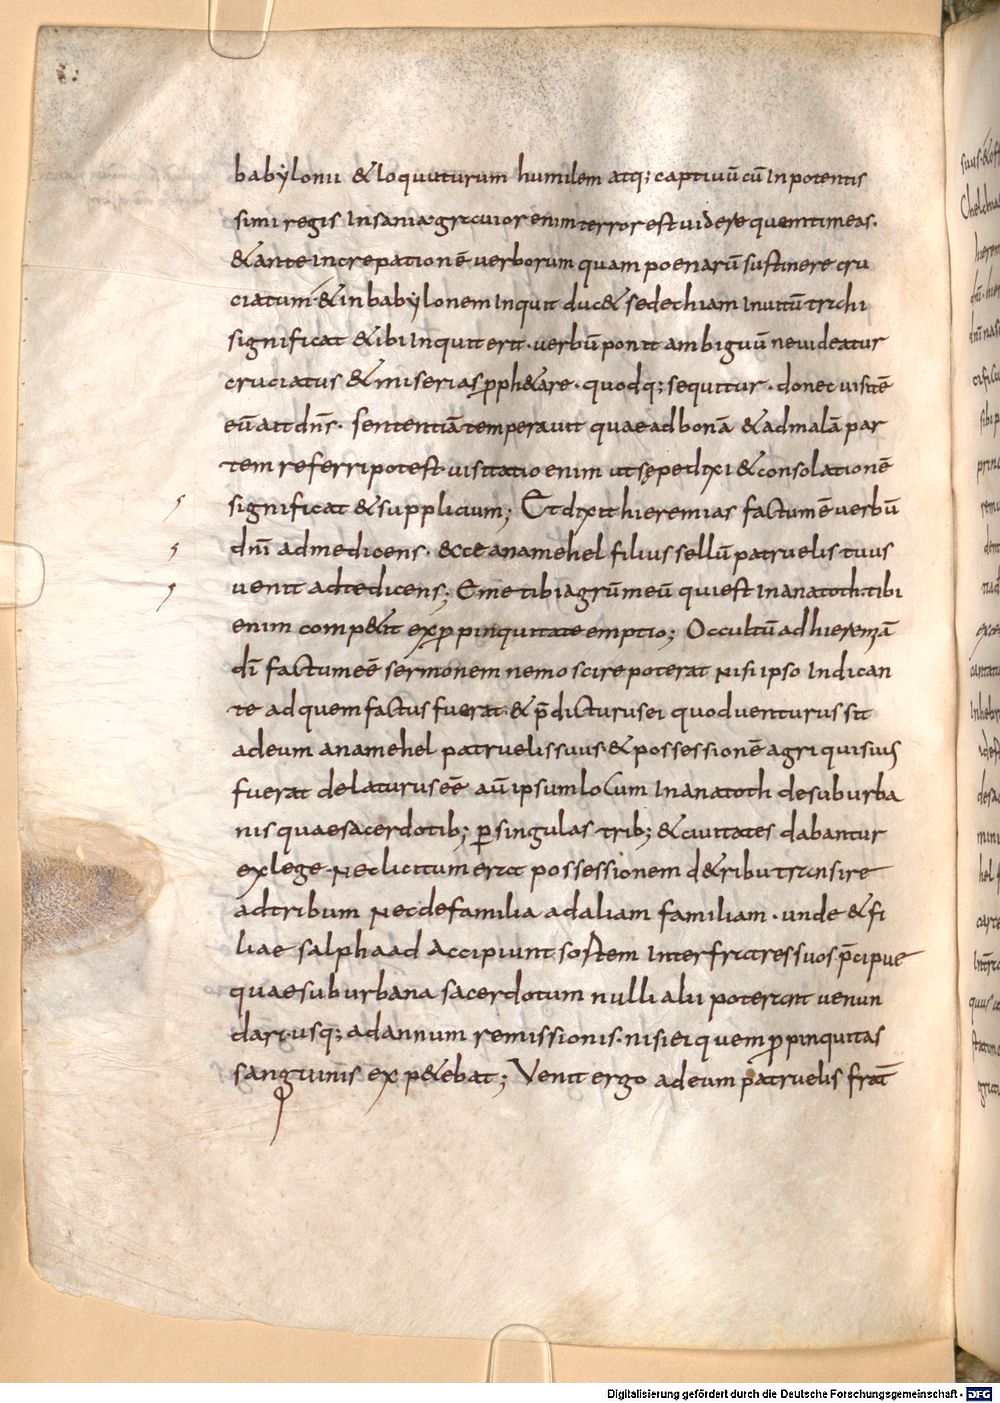 babylonii & loquuturum humilem atq; captiuū cū Inpotentis
simi regis Insania·grauior enim terror est uidere quem timeas·
& ante increpationē uerborum quam poenarū sustinere cru
ciatum & in babylonem Inquit duc& sedechiam Inuitū trahi
significat & ibi Inquit erit· uerbū ponit ambiguū neuideatur
cruciatus & miserias pph&are· quodq; sequitur· donec uisitē
eū ait dn̄s· sententiā temperauit quae ad bonā & ad malā par
tem referri potest· uisitatio enim ut sępe dixi & consolationē
significat & supplicium; Et dixit hieremias factum ē uerbū
dn̄i ad me dicens· ecce anamehel filius sellū patruelis tuus
uenit ad te dicens; Eme tibi agrū meū qui est In anatoth· tibi
enim comp&it ex ppinquitate emptio; Occultū ad hieremiā
dī factum eē sermonem nemo scire poterat Nisi ipso Indican
te ad quem factus fuerat· & p̄dicturus ei quod uenturus sit
ad eum anamehel patruelis suus & possessionē agri qui sius
fuerat delaturus eē aū ipsum locum In anatoth de suburba
nis quae sacerdotib; p singulas trib; & ciuitates dabantur
ex lege· Nec licitum erat possessionem d&ribu transire
ad tribum Nec de familia ad aliam familiam· unde & fi
liae salphaad Accipiunt sortem Inter fratres suos· p̄cipue
quae suburbana sacerdotum nulli alii poterant uenun
dari· usq; ad annum remissionis· nisi ei quem ppinquitas
sanguinis exp&ebat; Venit ergo ad eum patruelis frat̄
Digitalisierung gefördert durch die Deutsche Forschungsgemeinschaft - DFG